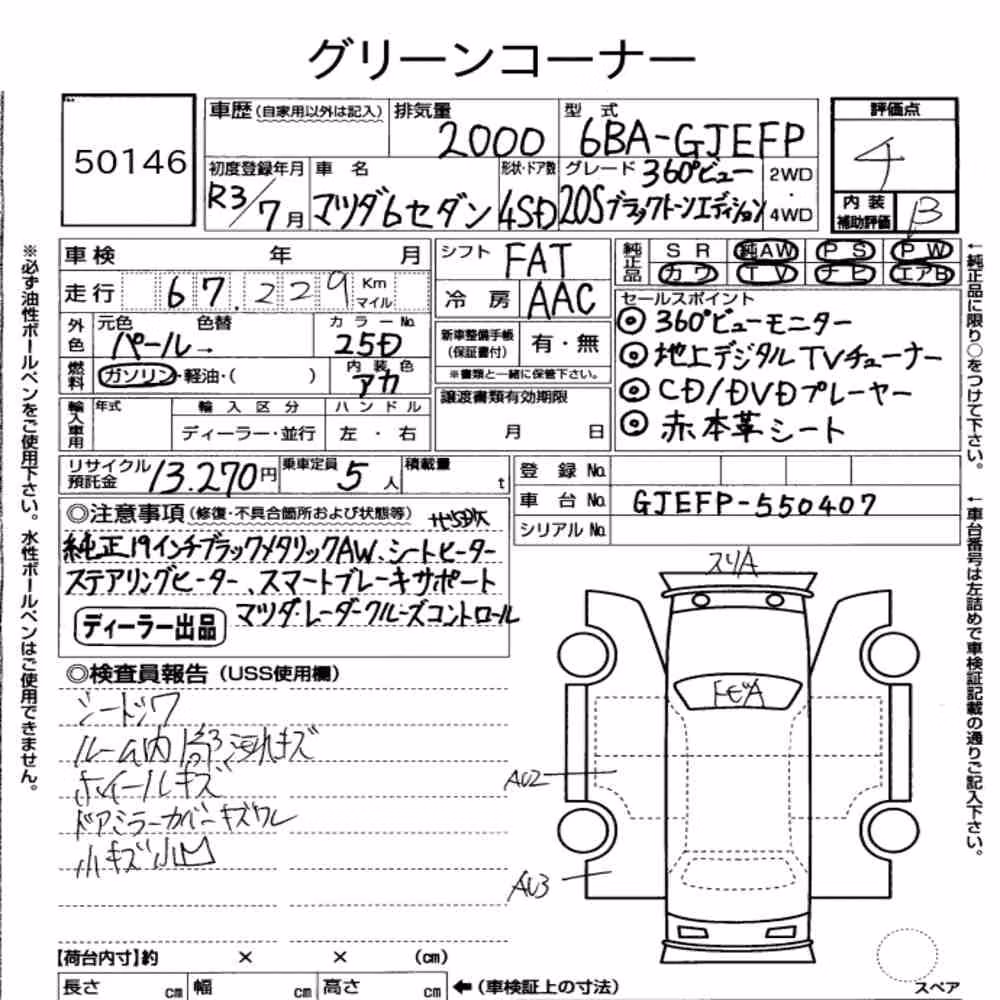 グリーンコーナー
50146
車歴 (自家用以外は記入) 排気量 2000 型式 6BA-GJEFP
評価点 4
初度登録年月 R3/7月 車名 マツダ6セダン 形状・ドア数 4SD グレード 360°ビュー 20Sブラックトーンエディション 2WD・4WD
内装補助評価 B
車検 年 月
走行 67.229 Km マイル
外色 元色 パール→ 色替 カラーNo. 25D
燃料 ガソリン・軽油・( ) 内装色 アカ
輸入車用 年式 輸入区分 ディーラー・並行 ハンドル 左・右
シフト FAT
冷房 AAC
新車整備手帳 (保証書付) 有・無
※書類と一緒に保管下さい。
譲渡書類有効期限
月 日
純正品 SR 純AW PS PW
カワ TV ナビ エアB
セールスポイント
◎ 360°ビューモニター
◎ 地上デジタルTVチューナー
◎ CD/DVDプレーヤー
◎ 赤本革シート
リサイクル預託金 13.270円 乗車定員 5人 積載量 t
登録No.
車台No. GJEFP-550407
シリアルNo.
◎注意事項 (修復・不具合箇所および状態等)
純正19インチブラックメタリックAW、シートヒーター
ステアリングヒーター、スマートブレーキサポート
マツダ・レーダークルーズコントロール
ディーラー出品
◎検査員報告 (USS使用欄)
シートシワ
ルーム内 汚れキズ
ホイールキズ
ドアミラーカバーキズワレ
小キズ小凹
スリA
トビA
AU2
AU3
【荷台内寸】約 × × (cm)
長さ cm 幅 cm 高さ cm ←(車検証上の寸法)
スペア
※必ず油性ボールペンをご使用下さい。水性ボールペンはご使用できません。
←純正品に限り○をつけて下さい。
←車台番号は左詰めで車検証記載の通りご記入下さい。